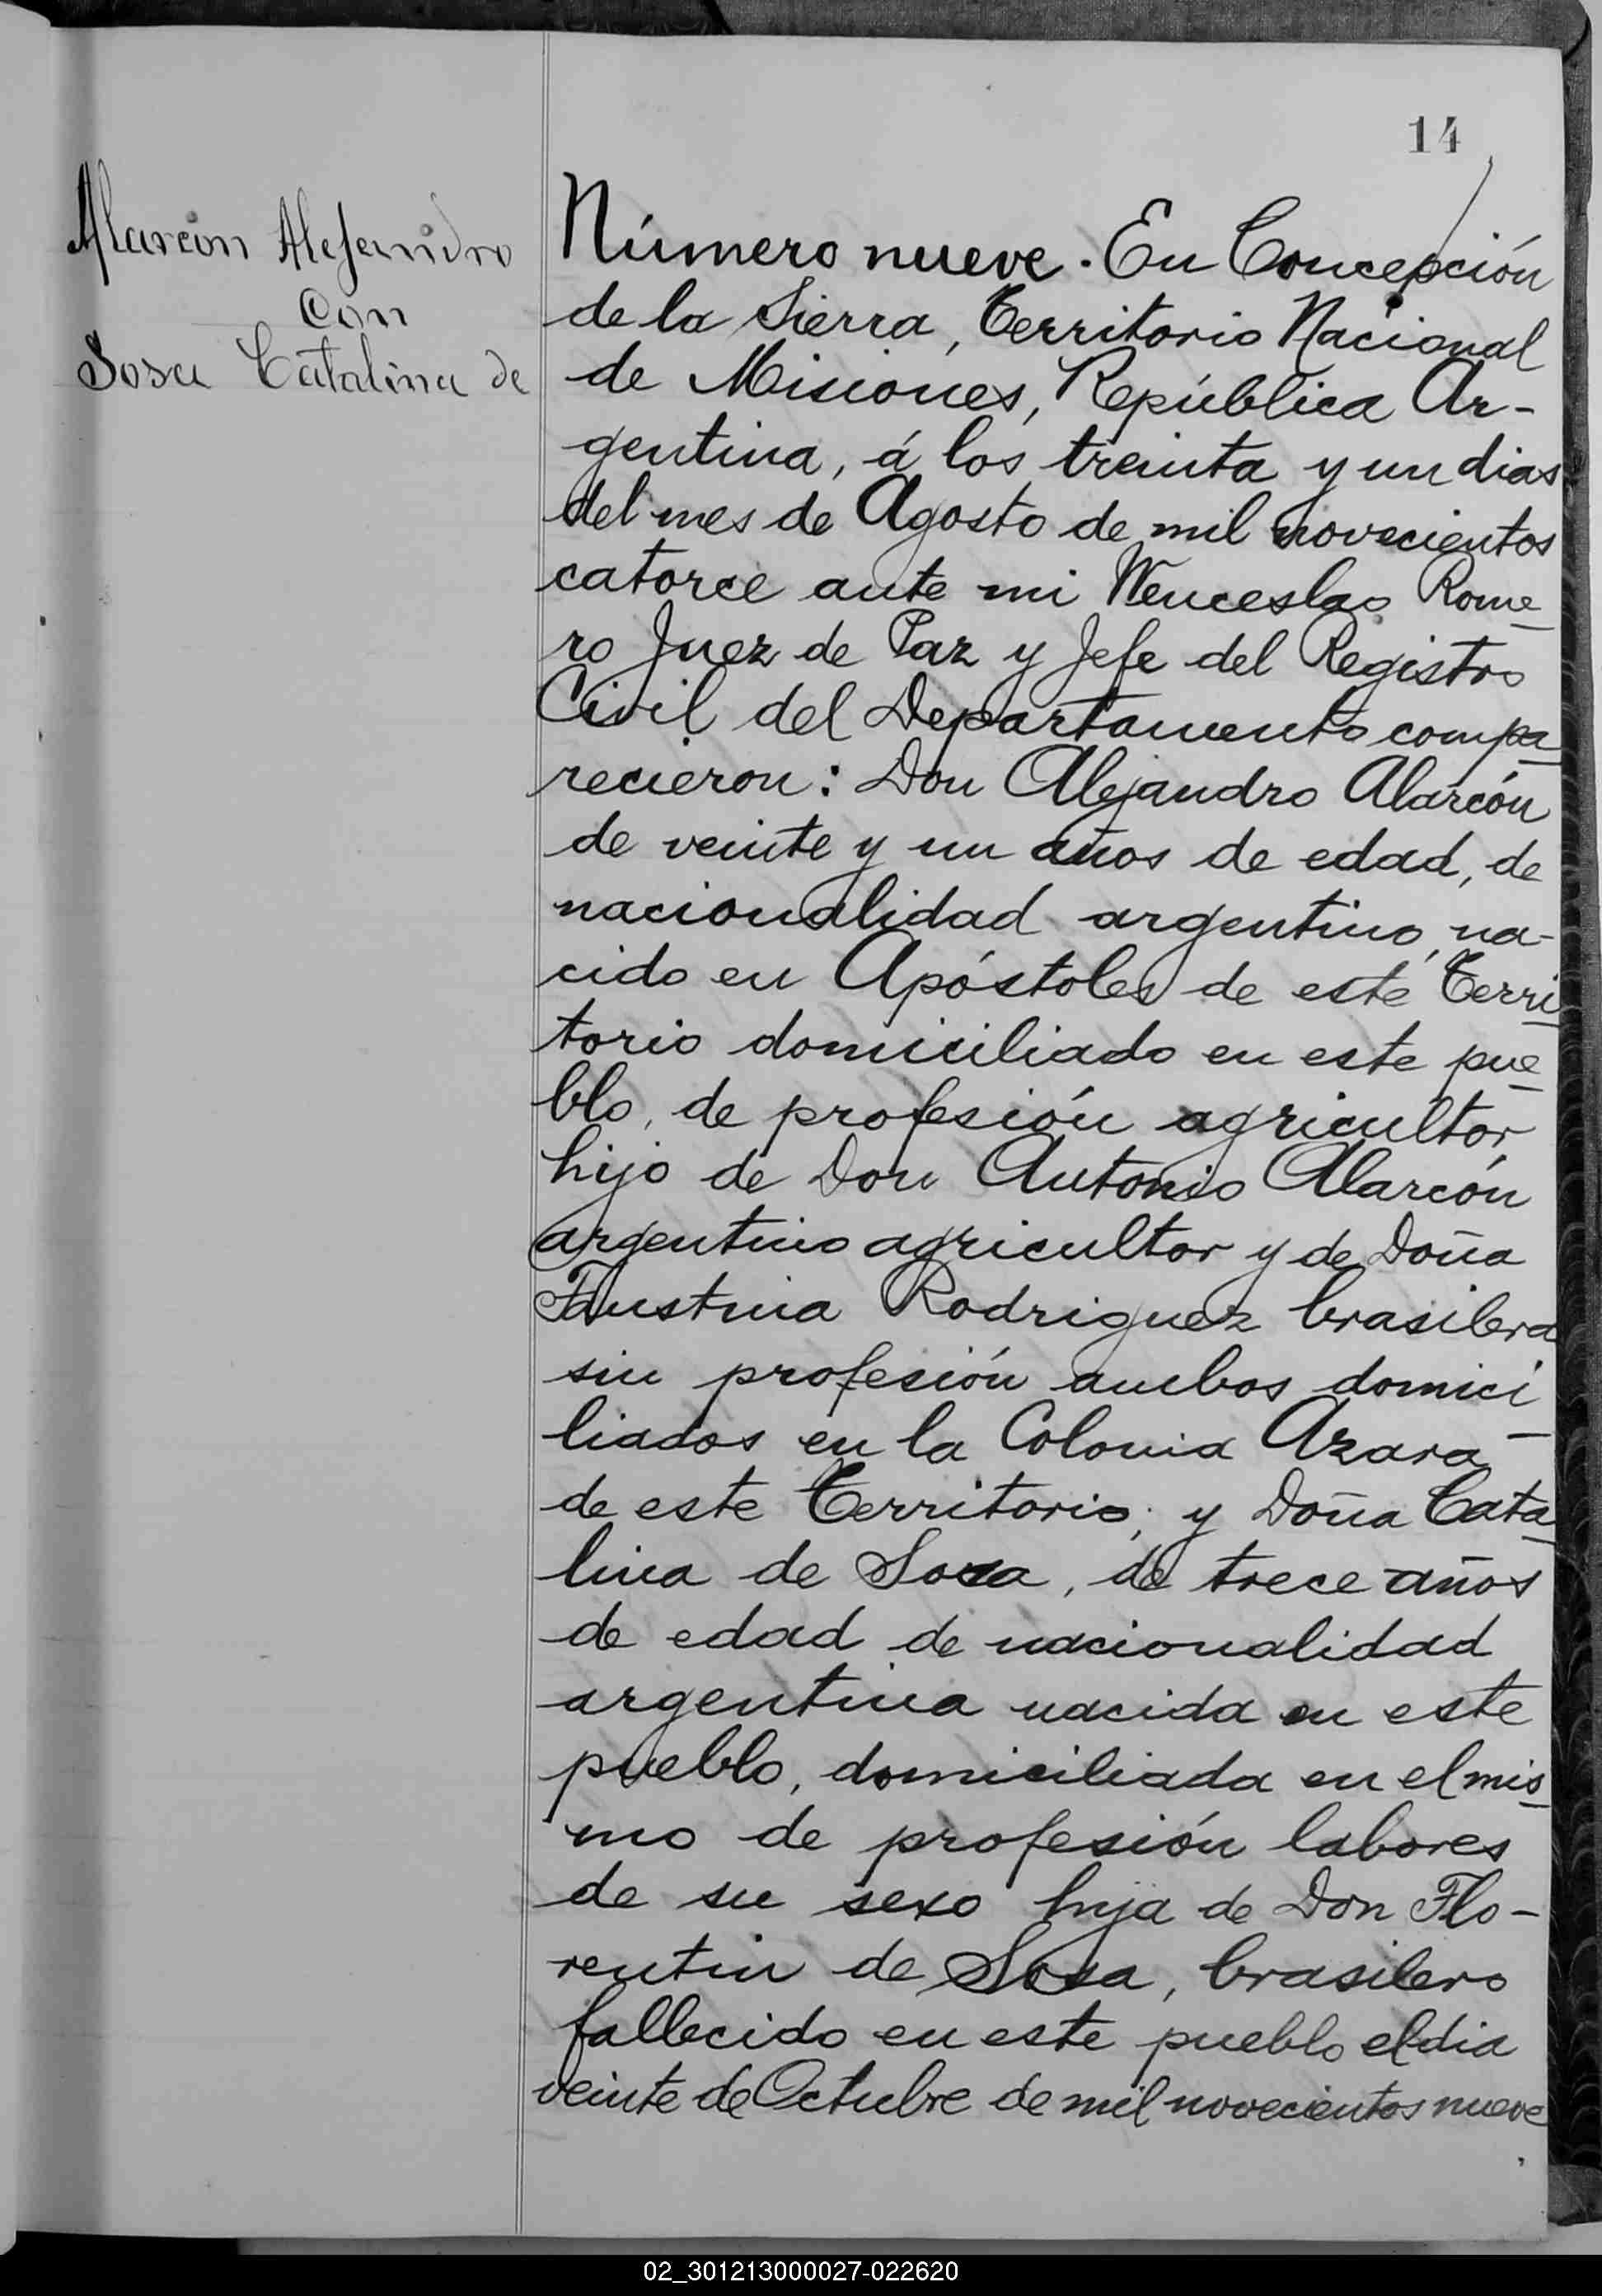 14
Alarcon Alejandro
Con
Sosa Catalina de
Número nueve. En Concepción
de la Sierra, Territorio Nacional
de Misiones, República Ar-
gentina, á los treinta y un dias
del mes de Agosto de mil novecientos
catorce ante mi Wenceslao Rome
ro Juez de Paz y Jefe del Registro
Civil del Departamento compa
recieron: Don Alejandro Alarcón
de veinte y un años de edad, de
nacionalidad argentino, na-
cido en Apóstoles de este Terri
torio domiciliado en este pue
blo, de profesión agricultor,
hijo de Don Antonio Alarcón
argentino agricultor y de Doña
Faustina Rodriguez brasilera
sin profesión ambos domici
liados en la Colonia Azara
de este Territorio; y Doña Cata
lina de Sosa, de trece años
de edad de nacionalidad
argentina nacida en este
pueblo, domiciliada en el mis
mo de profesión labores
de su sexo hija de Don Flo-
rentin de Sosa, brasilero
fallecido en este pueblo el dia
veinte de Octubre de mil novecientos nueve
02_301213000027-022620